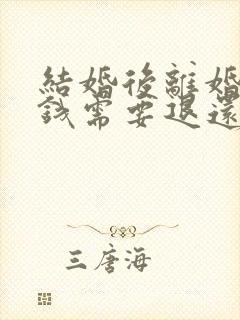 結婚後離婚
錢需要退還
三唐海